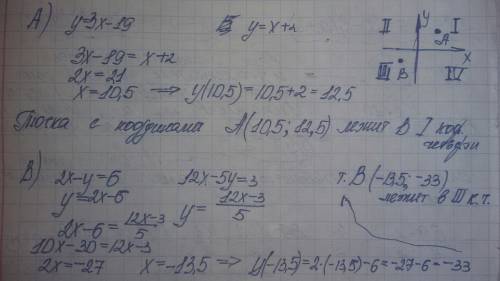 А) y=3x-19 y=x+2
3x-19=x+2
2x=21
x=10,5 ⟹ y(10,5)=10,5+2=12,5
II y I
A
x
III B IV
Точка с координатами A(10,5; 12,5) лежит в I коорд. четверти
В) 2x-y=6 12x-5y=3 т. B(-13,5; -33)
y=2x-6 y=\frac{12x-3}{5} лежит в III к.ч.
2x-6=\frac{12x-3}{5}
10x-30=12x-3
2x=-27 x=-13,5 ⟹ y(-13,5)=2·(-13,5)-6=-27-6=-33